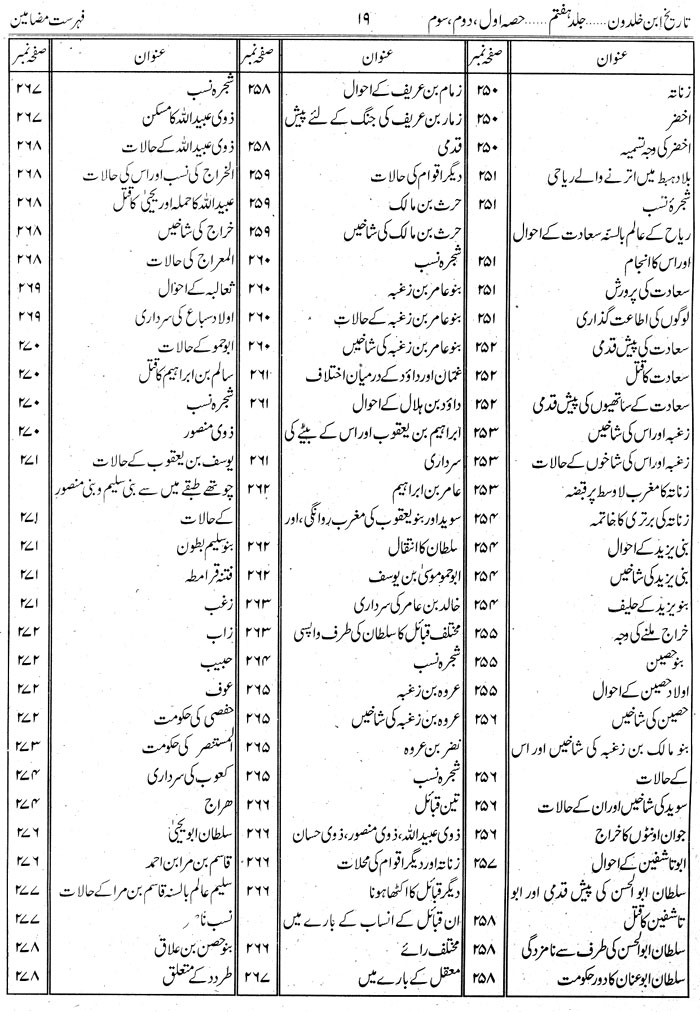 تاریخ ابن خلدون ...... جلد ہفتم ...... حصہ اول، دوم، سوم ۱۹ فہرست مضامین
عنوان صفحہ نمبر
زناتہ ۲۵۰
اخضر ۲۵۰
اخضر کی وجہ تسمیہ ۲۵۰
بلاد ہبط میں اترنے والے ریاحی ۲۵۱
شجرۂ نسب ۲۵۱
ریاح کے عالم بالسنہ سعادت کے احوال
اور اس کا انجام ۲۵۱
سعادت کی پرورش ۲۵۱
لوگوں کی اطاعت گذاری ۲۵۱
سعادت کی پیش قدمی ۲۵۲
سعادت کا قتل ۲۵۲
سعادت کے ساتھیوں کی پیش قدمی ۲۵۲
زغبہ اور اس کی شاخیں ۲۵۳
زغبہ اور اس کی شاخوں کے حالات ۲۵۳
زناتہ کا مغرب لاوسط پر قبضہ ۲۵۳
زناتہ کی برتری کا خاتمہ ۲۵۴
بنی یزید کے احوال ۲۵۴
بنی یزید کی شاخیں ۲۵۴
بنو یزید کے حلیف ۲۵۴
خراج ملنے کی وجہ ۲۵۵
بنو حصین ۲۵۵
اولاد حصین کے احوال ۲۵۵
حصین کی شاخیں ۲۵۶
بنو مالک بن زغبہ کی شاخیں اور اس
کے حالات ۲۵۶
سوید کی شاخیں اور ان کے حالات ۲۵۶
جوان اونٹوں کا خراج ۲۵۶
ابو تاشفین کے احوال ۲۵۷
سلطان ابوالحسن کی پیش قدمی اور ابو
تاشفین کا قتل ۲۵۸
سلطان ابوالحسن کی طرف سے نامزدگی ۲۵۸
سلطان ابوعنان کا دور حکومت ۲۵۸
عنوان صفحہ نمبر
زمام بن عریف کے احوال ۲۵۸
زمار بن عریف کی جنگ کے لئے پیش
قدمی ۲۵۸
دیگر اقوام کی حالات ۲۵۹
حرث بن مالک ۲۵۹
حرث بن مالک کی شاخیں ۲۵۹
شجرہ نسب ۲۶۰
بنو عامر بن زغبہ ۲۶۰
بنو عامر بن زغبہ کے حالات ۲۶۰
بنو عامر بن زغبہ کی شاخیں ۲۶۰
عثمان اور داؤد کے درمیان اختلاف ۲۶۱
داؤد بن ہلال کے احوال ۲۶۱
ابراہیم بن یعقوب اور اس کے بیٹے کی
سرداری ۲۶۱
عامر بن ابراہیم ۲۶۲
سوید اور بنو یعقوب کی مغرب روانگی، اور
سلطان کا انتقال ۲۶۲
ابوحمو موسیٰ بن یوسف ۲۶۲
خالد بن عامر کی سرداری ۲۶۳
مختلف قبائل کا سلطان کی طرف واپسی ۲۶۳
شجرہ نسب ۲۶۴
عروہ بن زغبہ ۲۶۵
عروہ بن زغبہ کی شاخیں ۲۶۵
نضر بن عروہ ۲۶۵
شجرہ نسب ۲۶۵
تین قبائل ۲۶۶
ذوی عبیداللہ، ذوی منصور، ذوی حسان ۲۶۶
زناتہ اور دیگر اقوام کی محلات ۲۶۶
دیگر قبائل کا اکٹھا ہونا ۲۶۶
ان قبائل کے انساب کے بارے میں
مختلف رائے ۲۶۶
معقل کے بارے میں ۲۶۷
عنوان صفحہ نمبر
شجرہ نسب ۲۶۷
ذوی عبیداللہ کا مسکن ۲۶۷
ذوی عبیداللہ کے حالات ۲۶۸
الخراج کی نسب اور اس کی حالات ۲۶۸
عبیداللہ کا حملہ اور یحییٰ کا قتل ۲۶۸
خراج کی شاخیں ۲۶۸
المعراج کی حالات ۲۶۸
ثعالبہ کے احوال ۲۶۹
اولاد سباع کی سرداری ۲۶۹
ابوحمو کے حالات ۲۷۰
سالم بن ابراہیم کا قتل ۲۷۰
شجرہ نسب ۲۷۰
ذوی منصور ۲۷۰
یوسف بن یعقوب کے حالات ۲۷۱
چوتھے طبقے میں سے بنی سلیم و بنی منصور
کے حالات ۲۷۱
بنو سلیم بطون ۲۷۱
فتنہ قرامطہ ۲۷۱
زغب ۲۷۱
زاب ۲۷۲
حبیب ۲۷۲
عوف ۲۷۲
حفصی کی حکومت ۲۷۲
المستنصر کی حکومت ۲۷۳
کعوب کی سرداری ۲۷۴
ھراج ۲۷۴
سلطان ابو یحییٰ ۲۷۶
قاسم بن مرا بن احمد ۲۷۶
سلیم عالم بالسنہ قاسم بن مرا کے حالات ۲۷۷
نسب ۲۷۷
بنو حصن بن علاق ۲۷۸
طردد کے متعلق ۲۷۸